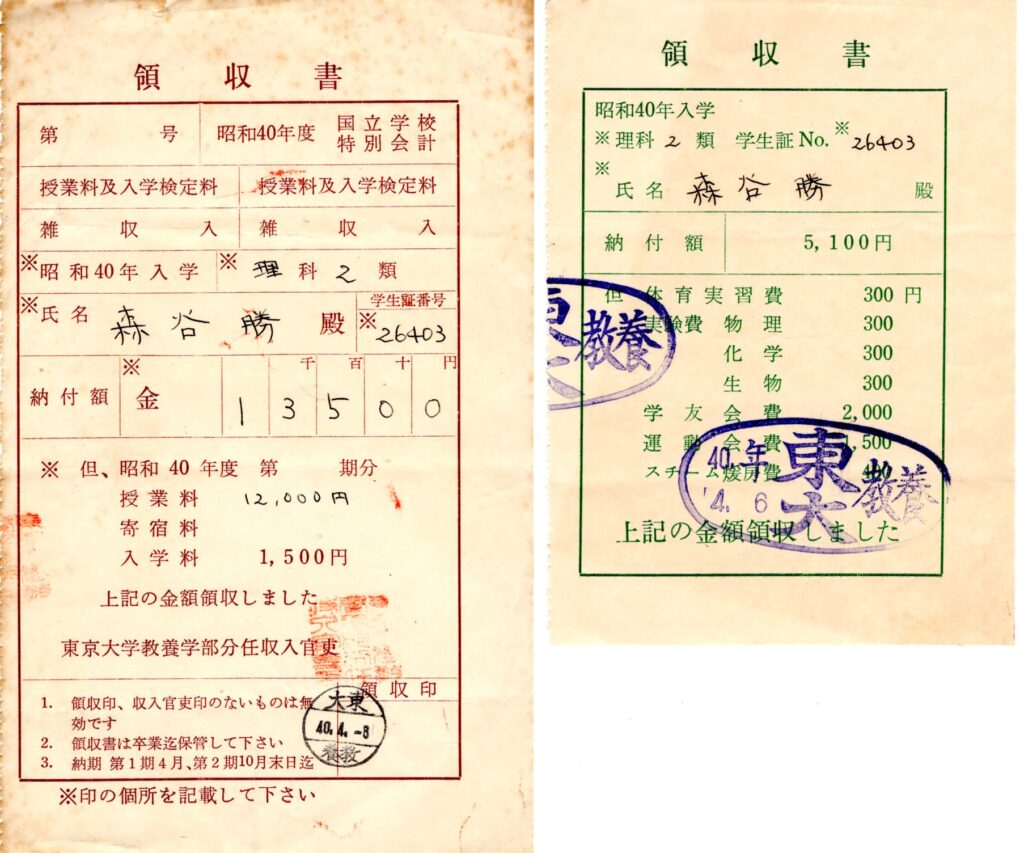 領収書
第 号 昭和40年度 国立学校特別会計
授業料及入学検定料 授業料及入学検定料
雑収入 雑収入
※昭和40年入学 ※理科2類
※氏名 森谷勝 殿 学生証番号 ※26403
千 百 十 円
納付額 ※金 1 3 5 0 0
※ 但、昭和 40 年度 第 期分
授業料 12,000円
寄宿料
入学料 1,500円
上記の金額領収しました
東京大学教養学部分任収入官吏
領収印
1. 領収印、収入官吏印のないものは無
効です
2. 領収書は卒業迄保管して下さい
3. 納期 第1期4月、第2期10月末日迄
大東
40.4.-8
養教
※印の個所を記載して下さい
領収書
昭和40年入学
※理科 2 類 学生証No.※26403
※氏名 森谷勝 殿
納付額 5,100円
但 体育実習費 300円
実験費 物理 300
化学 300
生物 300
学友会費 2,000
運動会費 1,500
スチーム煖房費
上記の金額領収しました
東大
教養
40.年
'4.6
東大
教養